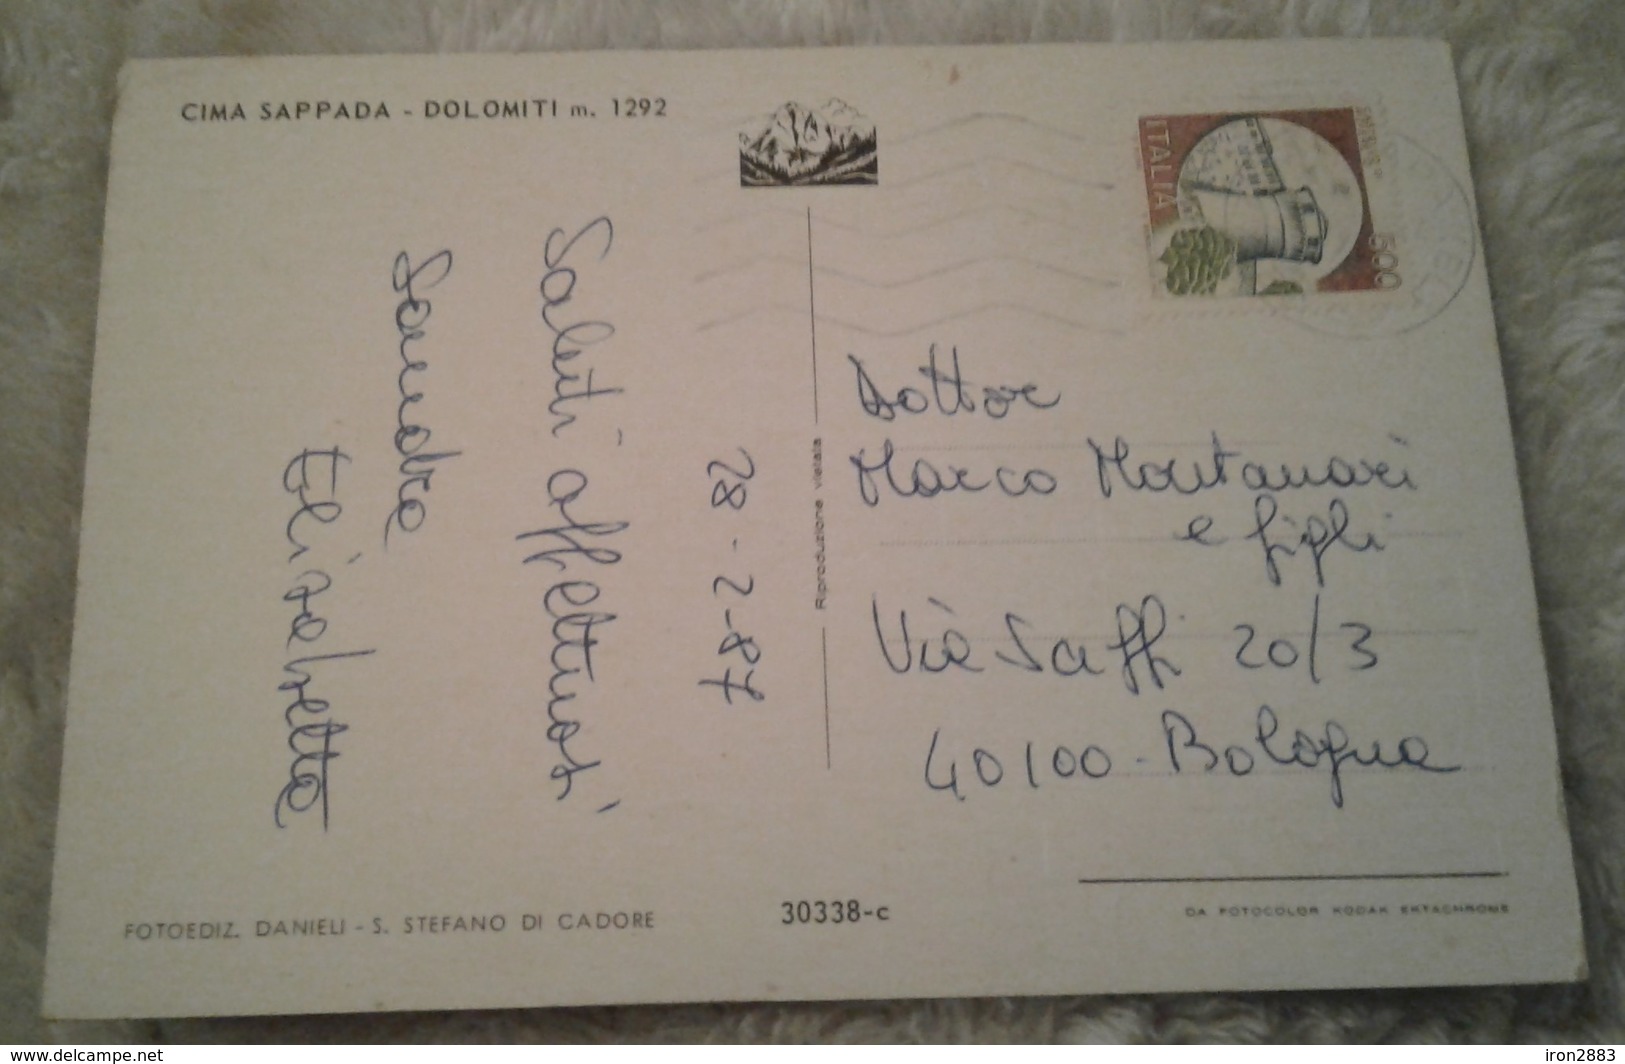 CIMA SAPPADA - DOLOMITI m. 1292
ITALIA
500
28-2-87
Saluti affettuosi
Sandra
Elisabetta
Riproduzione vietata
Dottor
Marco Montanari
e figli
Via Saffi 20/3
40100-Bologna
FOTOEDIZ. DANIELI - S. STEFANO DI CADORE
30338-c
DA FOTOCOLOR KODAK EKTACHROME
www.delcampe.net
iron2883